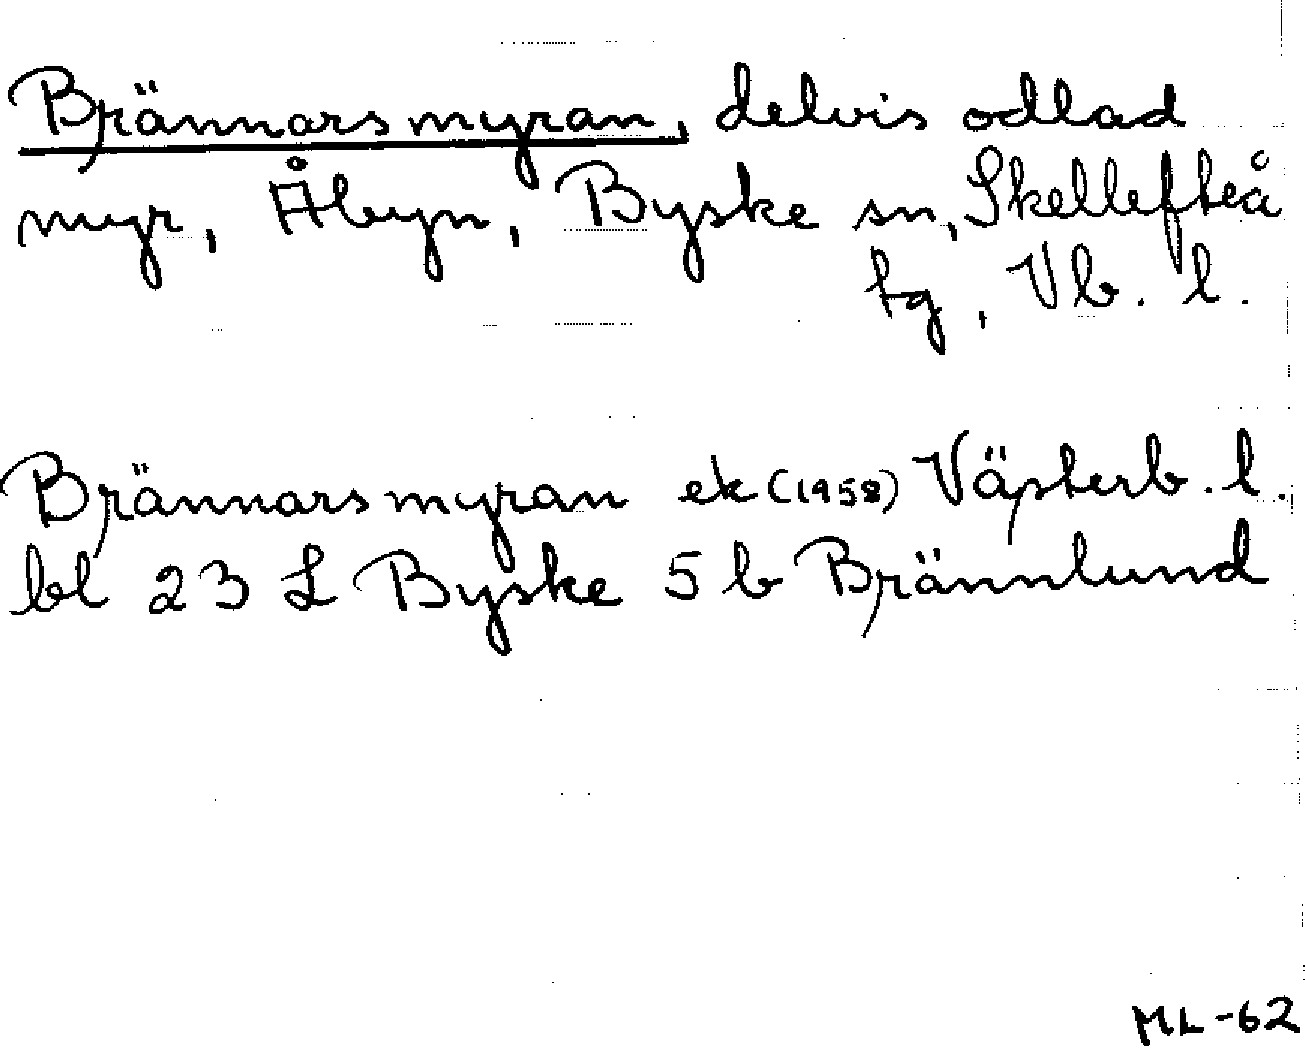 Brännarsmyran, delvis odlad
myr, Åbyn, Byske sn, Skellefteå
tg, Vb. l.
Brännarsmyran ek (1958) Västerb. l.
bl 23 L Byske 5 b Brännlund
ML-62